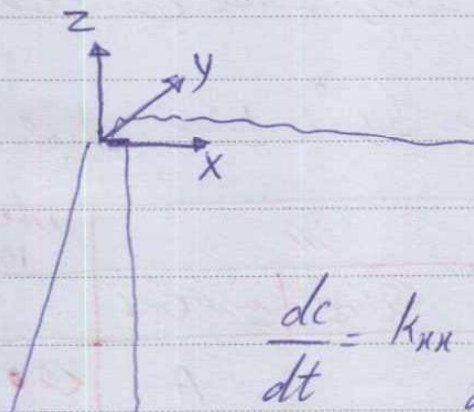 Z
Y
X
dc/dt = k_xx